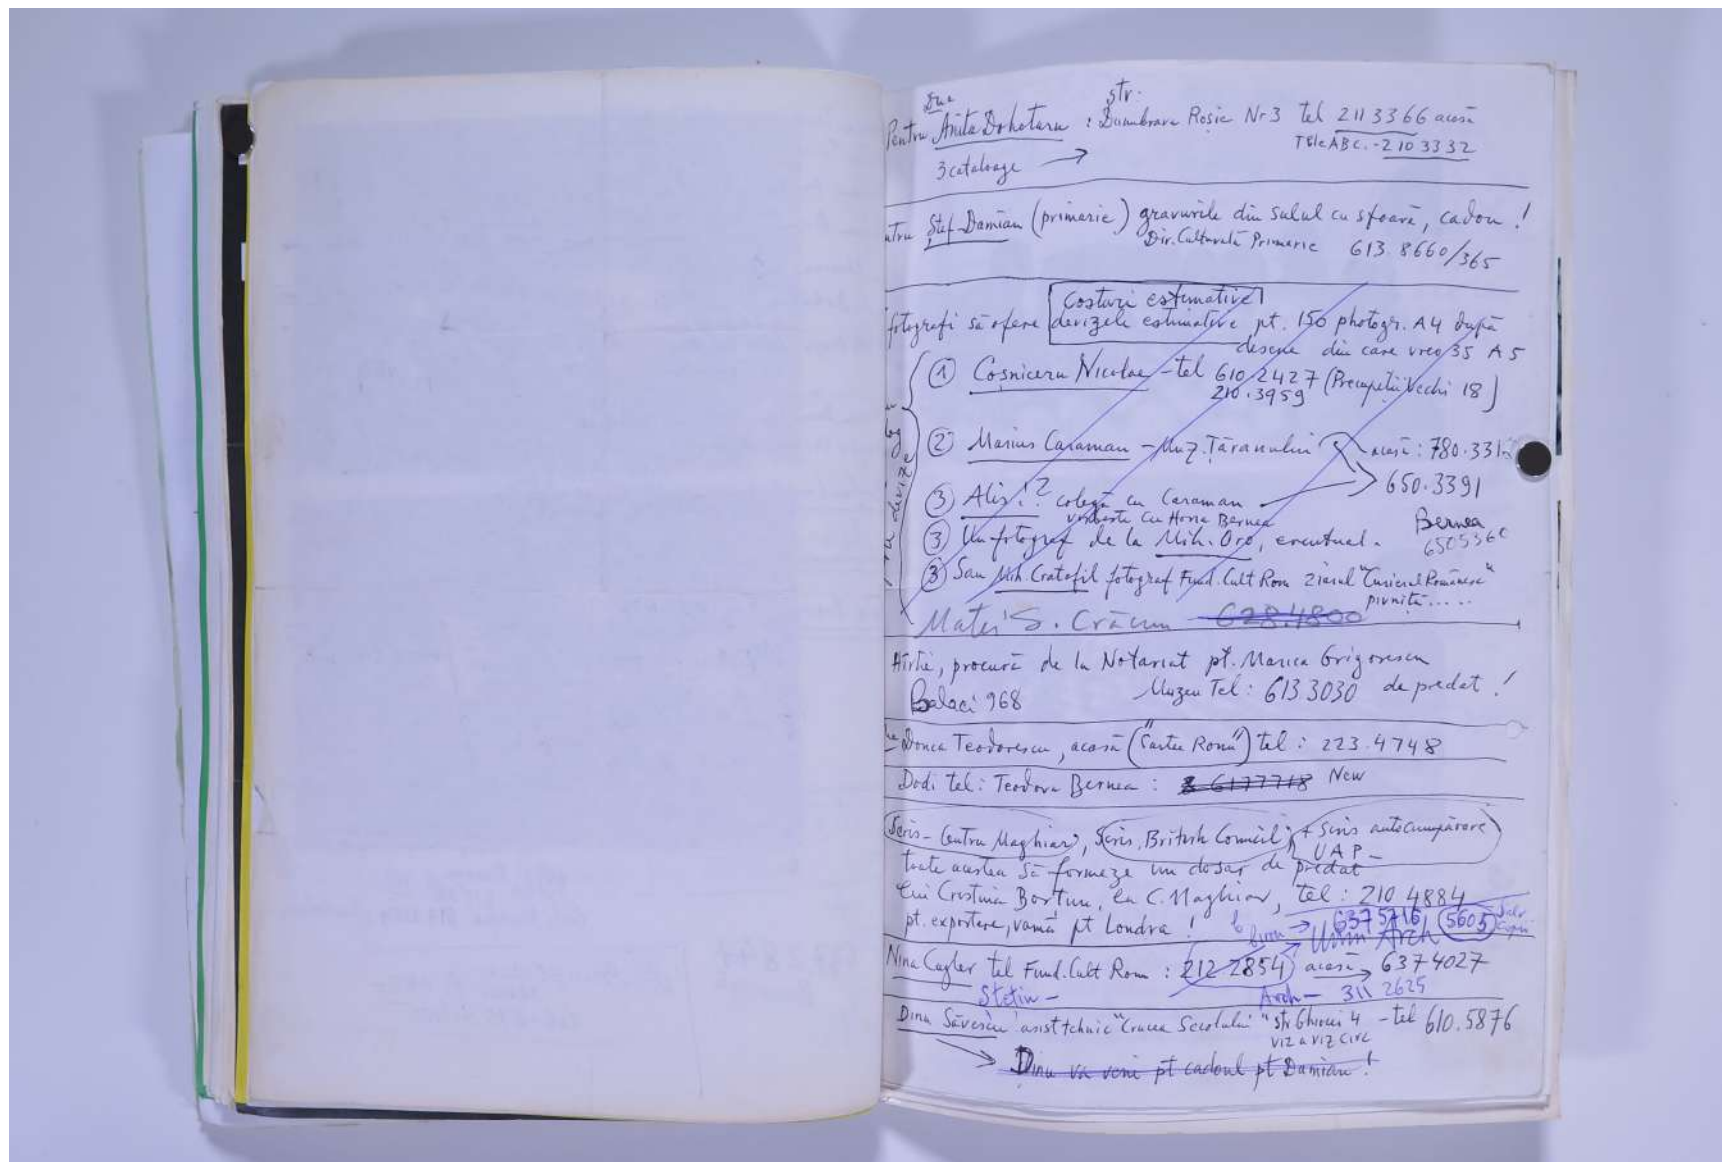 Dna str.
Pentru Anita Dohotaru : Dumbrava Roșie Nr 3 tel 211 3366 acasă
TeleABC. - 210 3332
3 cataloage →
ntru Ștef. Damian (primarie) gravurile din sulul cu sfoară, cadou!
Dir. Culturală Primarie 613.8660/365
Costuri estimative
fotografi să ofere devizele estimative pt. 150 photogr. A4 după
desene din care vreo 35 A5
① Coșniceru Nicolae - tel 610 2427 (Precupeții Vechi 18)
210.3959
② Marius Caraman - Muz. Țăranului acasă : 780.331
650.3391
③ Alis!? colegă cu Caraman
vorbește cu Horia Bernea
Bernea
6505360
③ Un fotograf de la Mih. Oro, eventual.
③ Sau Mih. Cratofil fotograf Fund. Cult Rom ziarul "Curierul Românesc"
pivniță.....
devize
Matei S. Crăciun 628.4800
Hîrtie, procură de la Notariat pt. Marica Grigorescu
Balaci 968 Muzeu Tel: 613 3030 de predat!
Donca Teodorescu, acasă ("Cartea Rom") tel: 223.4748
Dodi tel: Teodora Bernea : 6177718 New
Scris - Centru Maghiar, Scris, British Council, + Scris autocumpărare
UAP -
toate acestea să formeze un dosar de predat
lui Cristina Bortun, la C. Maghiar, tel: 210 4884
pt. exportare, vamă pt Londra!
birou → 6375716, 5605 Salv Copii
Uniun Arch
Nina Cugler tel Fund. Cult Rom : 212 2854 acasă → 637 4027
Stetin - Arch - 311 2625
Dinu Săvescu asist tehnic "Crucea Secolului" str Ghiocei 4 - tel 610.5876
viz a viz Circ
→ Dinu va veni pt cadoul pt Damian!